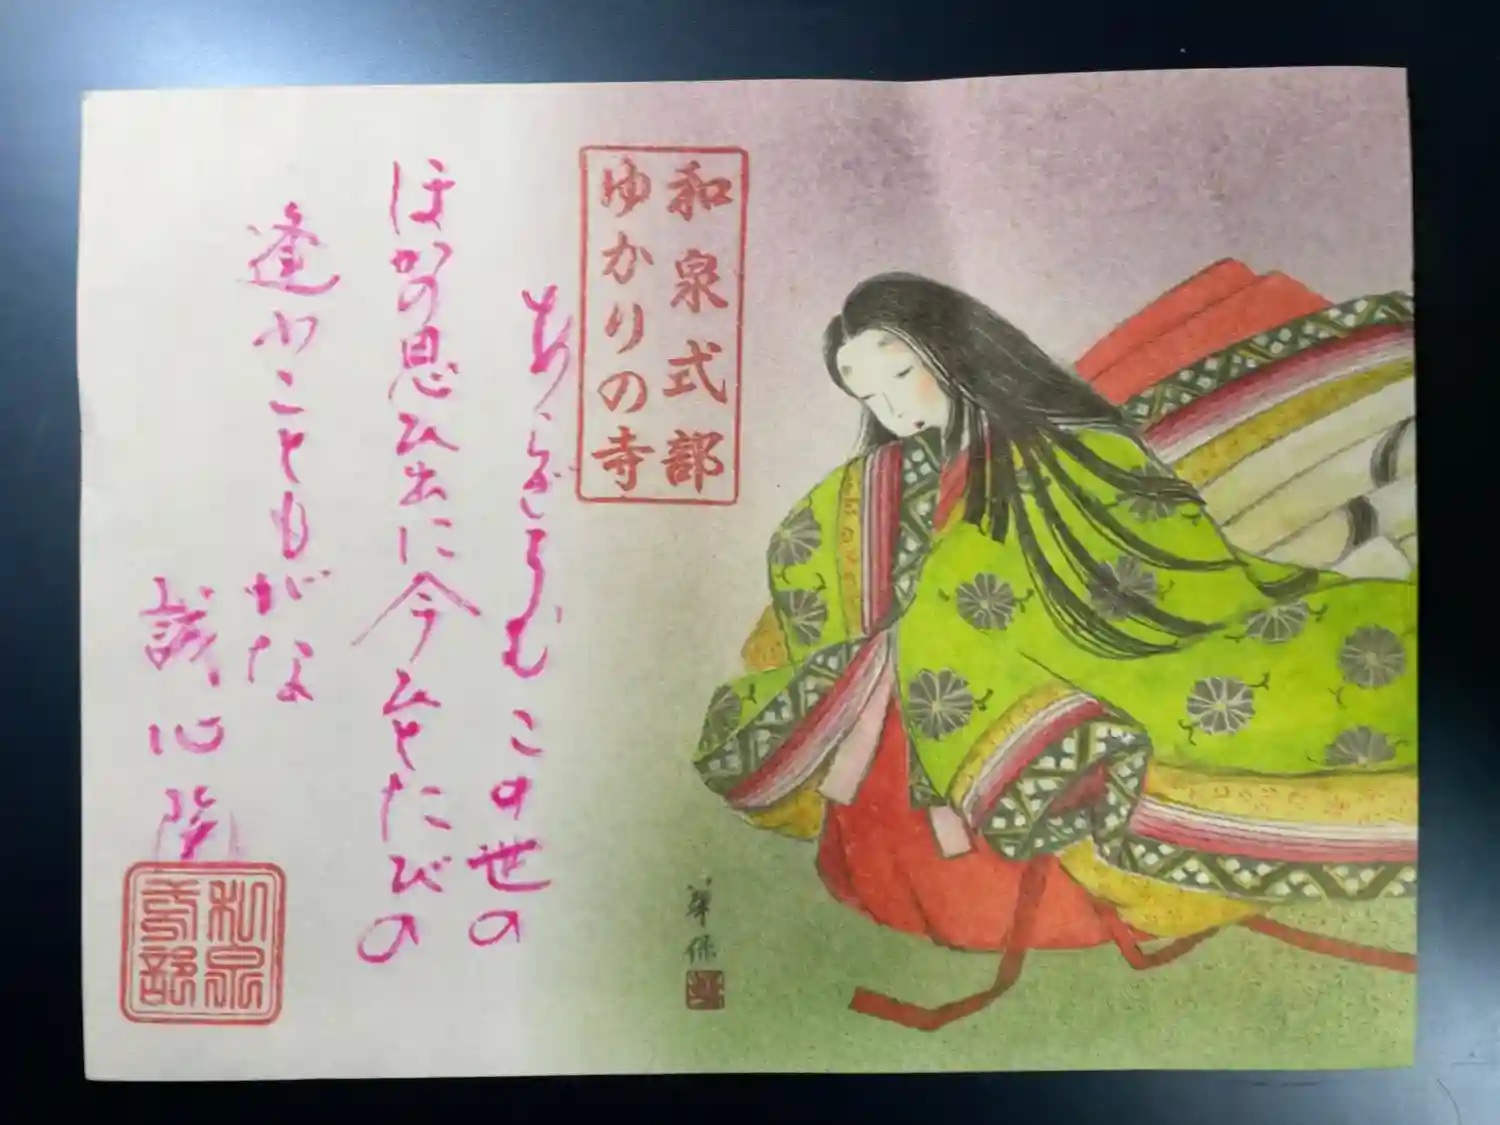 和泉式部
ゆかりの寺
あらざらむこの世の
ほかの思ひ出に今ひとたびの
逢ふこともがな
誠心院
和泉
式部